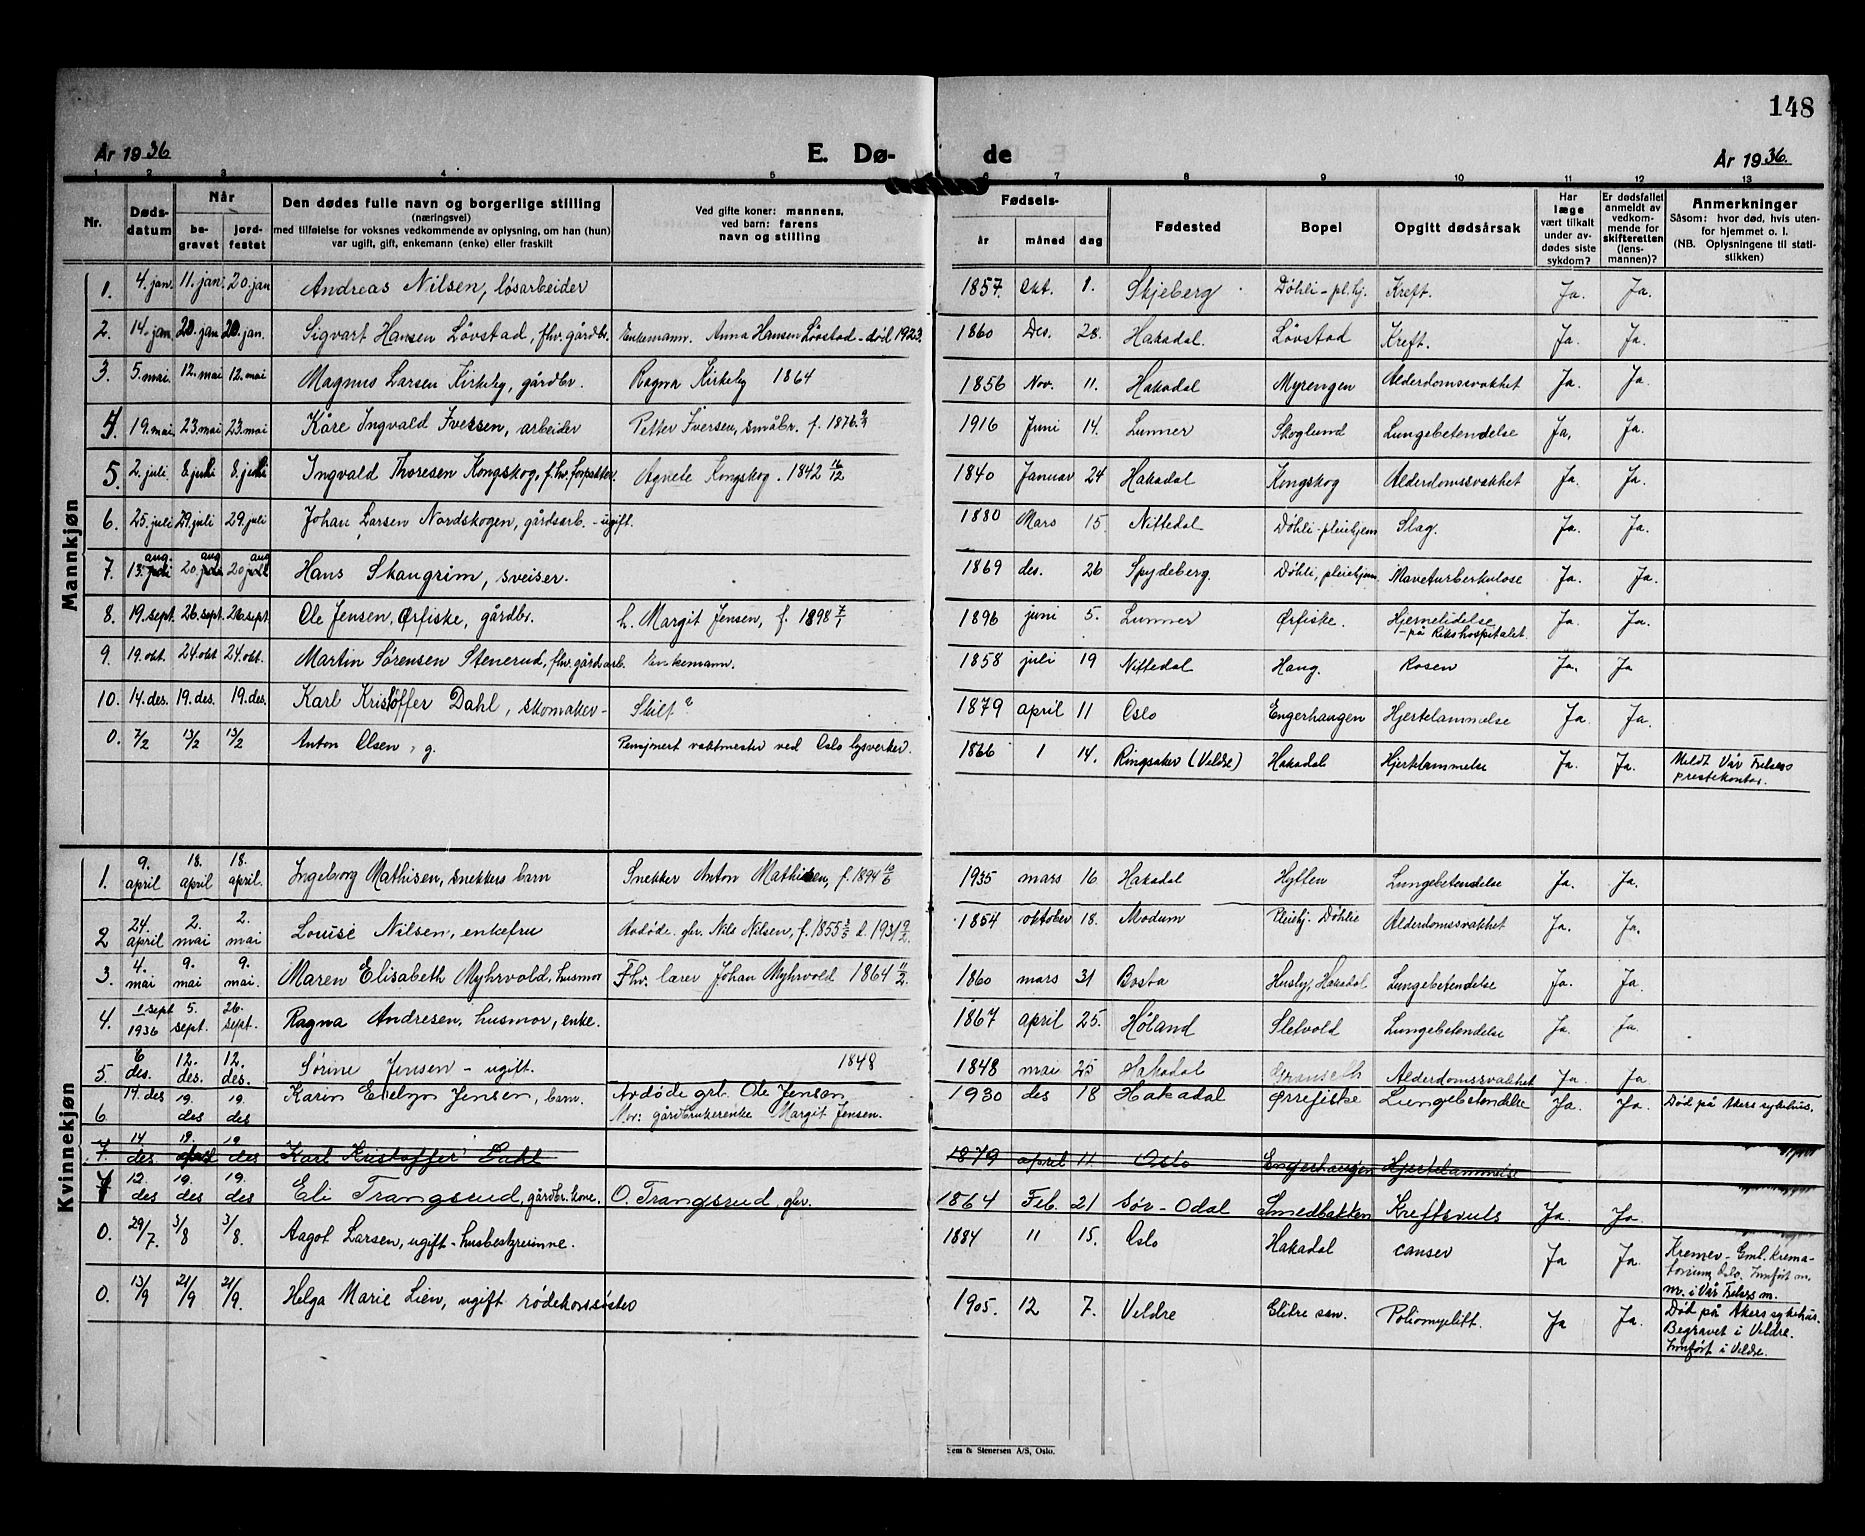 148
År 1936
E. Dø-
de
År 1936.
1 2 3 4 5 6 7 8 9 10 11 12 13
Nr.
Døds-
datum
Når
be-
gravet
jord-
festet
Den dødes fulle navn og borgerlige stilling
(næringsvei)
med tilføielse for voksnes vedkommende av oplysning, om han (hun)
var ugift, gift, enkemann (enke) eller fraskilt
Ved gifte koner: mannens,
ved barn: farens
navn og stilling
Fødsels-
år
måned
dag
Fødested
Bopel
Opgitt dødsårsak
Har
læge
vært tilkalt
under av-
dødes siste
sykdom?
Er dødsfallet
anmeldt av
vedkom-
mende for
skifteretten
(lens-
mannen)?
Anmerkninger
Såsom: hvor død, hvis uten-
for hjemmet o. l.
(NB. Oplysningene til stati-
stikken)
Mannkjøn
1. 4. jan. 11. jan. 20. jan Andreas Nilsen, løsarbeider 1857. Okt. 8. Skjeberg Döhli-pl.hj. Kreft. Ja. Ja.
2. 14. jan 20. jan 20. jan. Sigvart Hansen Løvstad, fhv. gårdbr. Enkemann. Anna Hansen Løvstad - död 1923. 1860 Des. 28. Hakadal. Løvstad Kreft. Ja. Ja.
3. 5. mai. 12. mai 12. mai Magnus Larsen Kirkeby, gårdbr. Ragna Kirkeby 1864 1856 Nov. 11. Hakadal Myrengen Alderdomssvakhet Ja. Ja.
4. 19. mai 23. mai 23. mai Kåre Ingvald Iversen, arbeider Petter Iversen, småbr. f. 1876 1916 Juni 14. Lunner Skoglund Lungebetendelse Ja. Ja.
5. 2. juli 8. juli 8. juli Ingvald Thoresen Kongskog, f.hv. forpakter. Agnete Kongskog. 1842 16/12 1840 Januar 24 Hakadal Kongskog Alderdomssvakhet Ja. Ja.
6. 25. juli 29. juli 29. juli Johan Larsen Nordskogen, gårdsarb. - ugift. 1880 Mars 15. Nittedal Döhli-pleiehjem Slag. Ja. Ja.
7. 13. aug. 20. aug 20 aug Hans Skaugrim, sveiser. 1869 des. 26 Spydeberg. Döhli, pleiehjem Maveturberkulose Ja. Ja.
8. 19. sept. 26. sept 26. sept. Ole Jensen, Ørfiske, gårdbr. h. Margit Jensen, f. 1898 7/1 1896 juni 5. Lunner Ørfiske. Hjernelidelse
- på Rikshospitalet. Ja. Ja.
9. 19. okt. 24. okt 24. okt. Martin Sørensen Stenerud, fhv. gårdsarb. Enkemann. 1858 juli 19 Nittedal Haug. Rosen Ja. Ja
10. 14. des. 19. des. 19. des. Karl Kristoffer Dahl, skomaker - Skilt? 1879 april 11 Oslo Engerhaugen Hjertelammelse Ja. Ja.
0. 7/2 13/2 13/2 Anton Olsen, g. Pensjonert vaktmester ved Oslo lysverker. 1866 1 14. Ringsaker (Veldre) Hakadal Hjertelammelse Ja. Ja. Meldt Vår Frelsers
prestekontor.
Kvinnekjøn
1. 9. april 18. april 18. april. Ingeborg Mathisen, snekkers barn Snekker Anton Mathisen, f. 1894 10/6 1935 mars 16 Hakadal Hytten Lungebetendelse Ja. Ja.
2 24. april 2. mai 2. mai Louise Nilsen, enkefru Avdöde gbr. Nils Nilsen, f. 1855 d. 1931 1854 oktober 18. Modum Pleiehj. Döhlie Alderdomssvakhet Ja. Ja.
3. 4. mai 9. mai 9. mai. Maren Elisabeth Myhrvold, husmor Fhv. lærer Johan Myhrvold 1864 11/2. 1860 mars 31 Bosta Husby, Hakadal Lungebetendelse Ja. Ja.
4. 1. sept 1936 5. sept. 26. sept. Ragna Andresen, husmor, enke. 1867 april 25. Høland Sletvold Lungebetendelse Ja. Ja.
5. 6 des. 12. des. 12. des. Sørine Jensen - ugift. 1848 1848 mai 25 Hakadal Alderdomssvakhet Ja. Ja.
6. 14. des 19. des 19. des Karin Evelyn Jensen, barn. Avdøde grb. Ole Jensen
Mor: gårdbrukerenke Margit Jensen. 1930 des 18 Hakadal Ørrefiske Lungebetendelse Ja. Ja. Död på Akers sykehus.
7. 14 des 19. april 19 des Karl Kristoffer Dahl 1879 april 11. Oslo Engerhaugen Hjertelammelse
7 12. des 19. des 19. des Eli Trangsrud, gårdbr. kone. O. Trangsrud, gbr. 1864 Feb. 21 Sør-Odal Smedbakken Kreftsvuls Ja. Ja.
0. 29/7 3/8 3/8. Aagot Larsen, ugift - husbestyrerinne. 1884 11 15. Oslo Hakadal canser Ja Ja. Kremer. Gml. Krema-
torium, Oslo. Innført m.
m. i Vår Frelsers m.
0. 13/9 21/9 21/9. Helga Marie Lien, ugift rødekorssøster 1905. 12 7. Veldre Elitre san. Poliomyelitt. Ja Ja. Död på Akers sykehus.
Begravet i Veldre.
Innført i Veldre.
Sem & Stenersen A/S, Oslo.